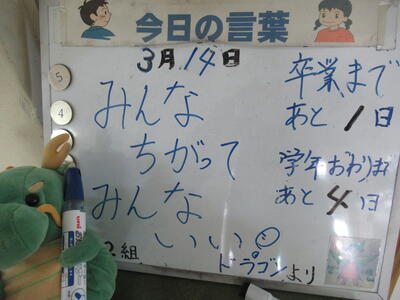 今日の言葉
3月14日
みんな
ちがって
みんな
いい
2組
ドラゴンより
卒業まで
あと1日
学年おわりま
あと4日
5
4